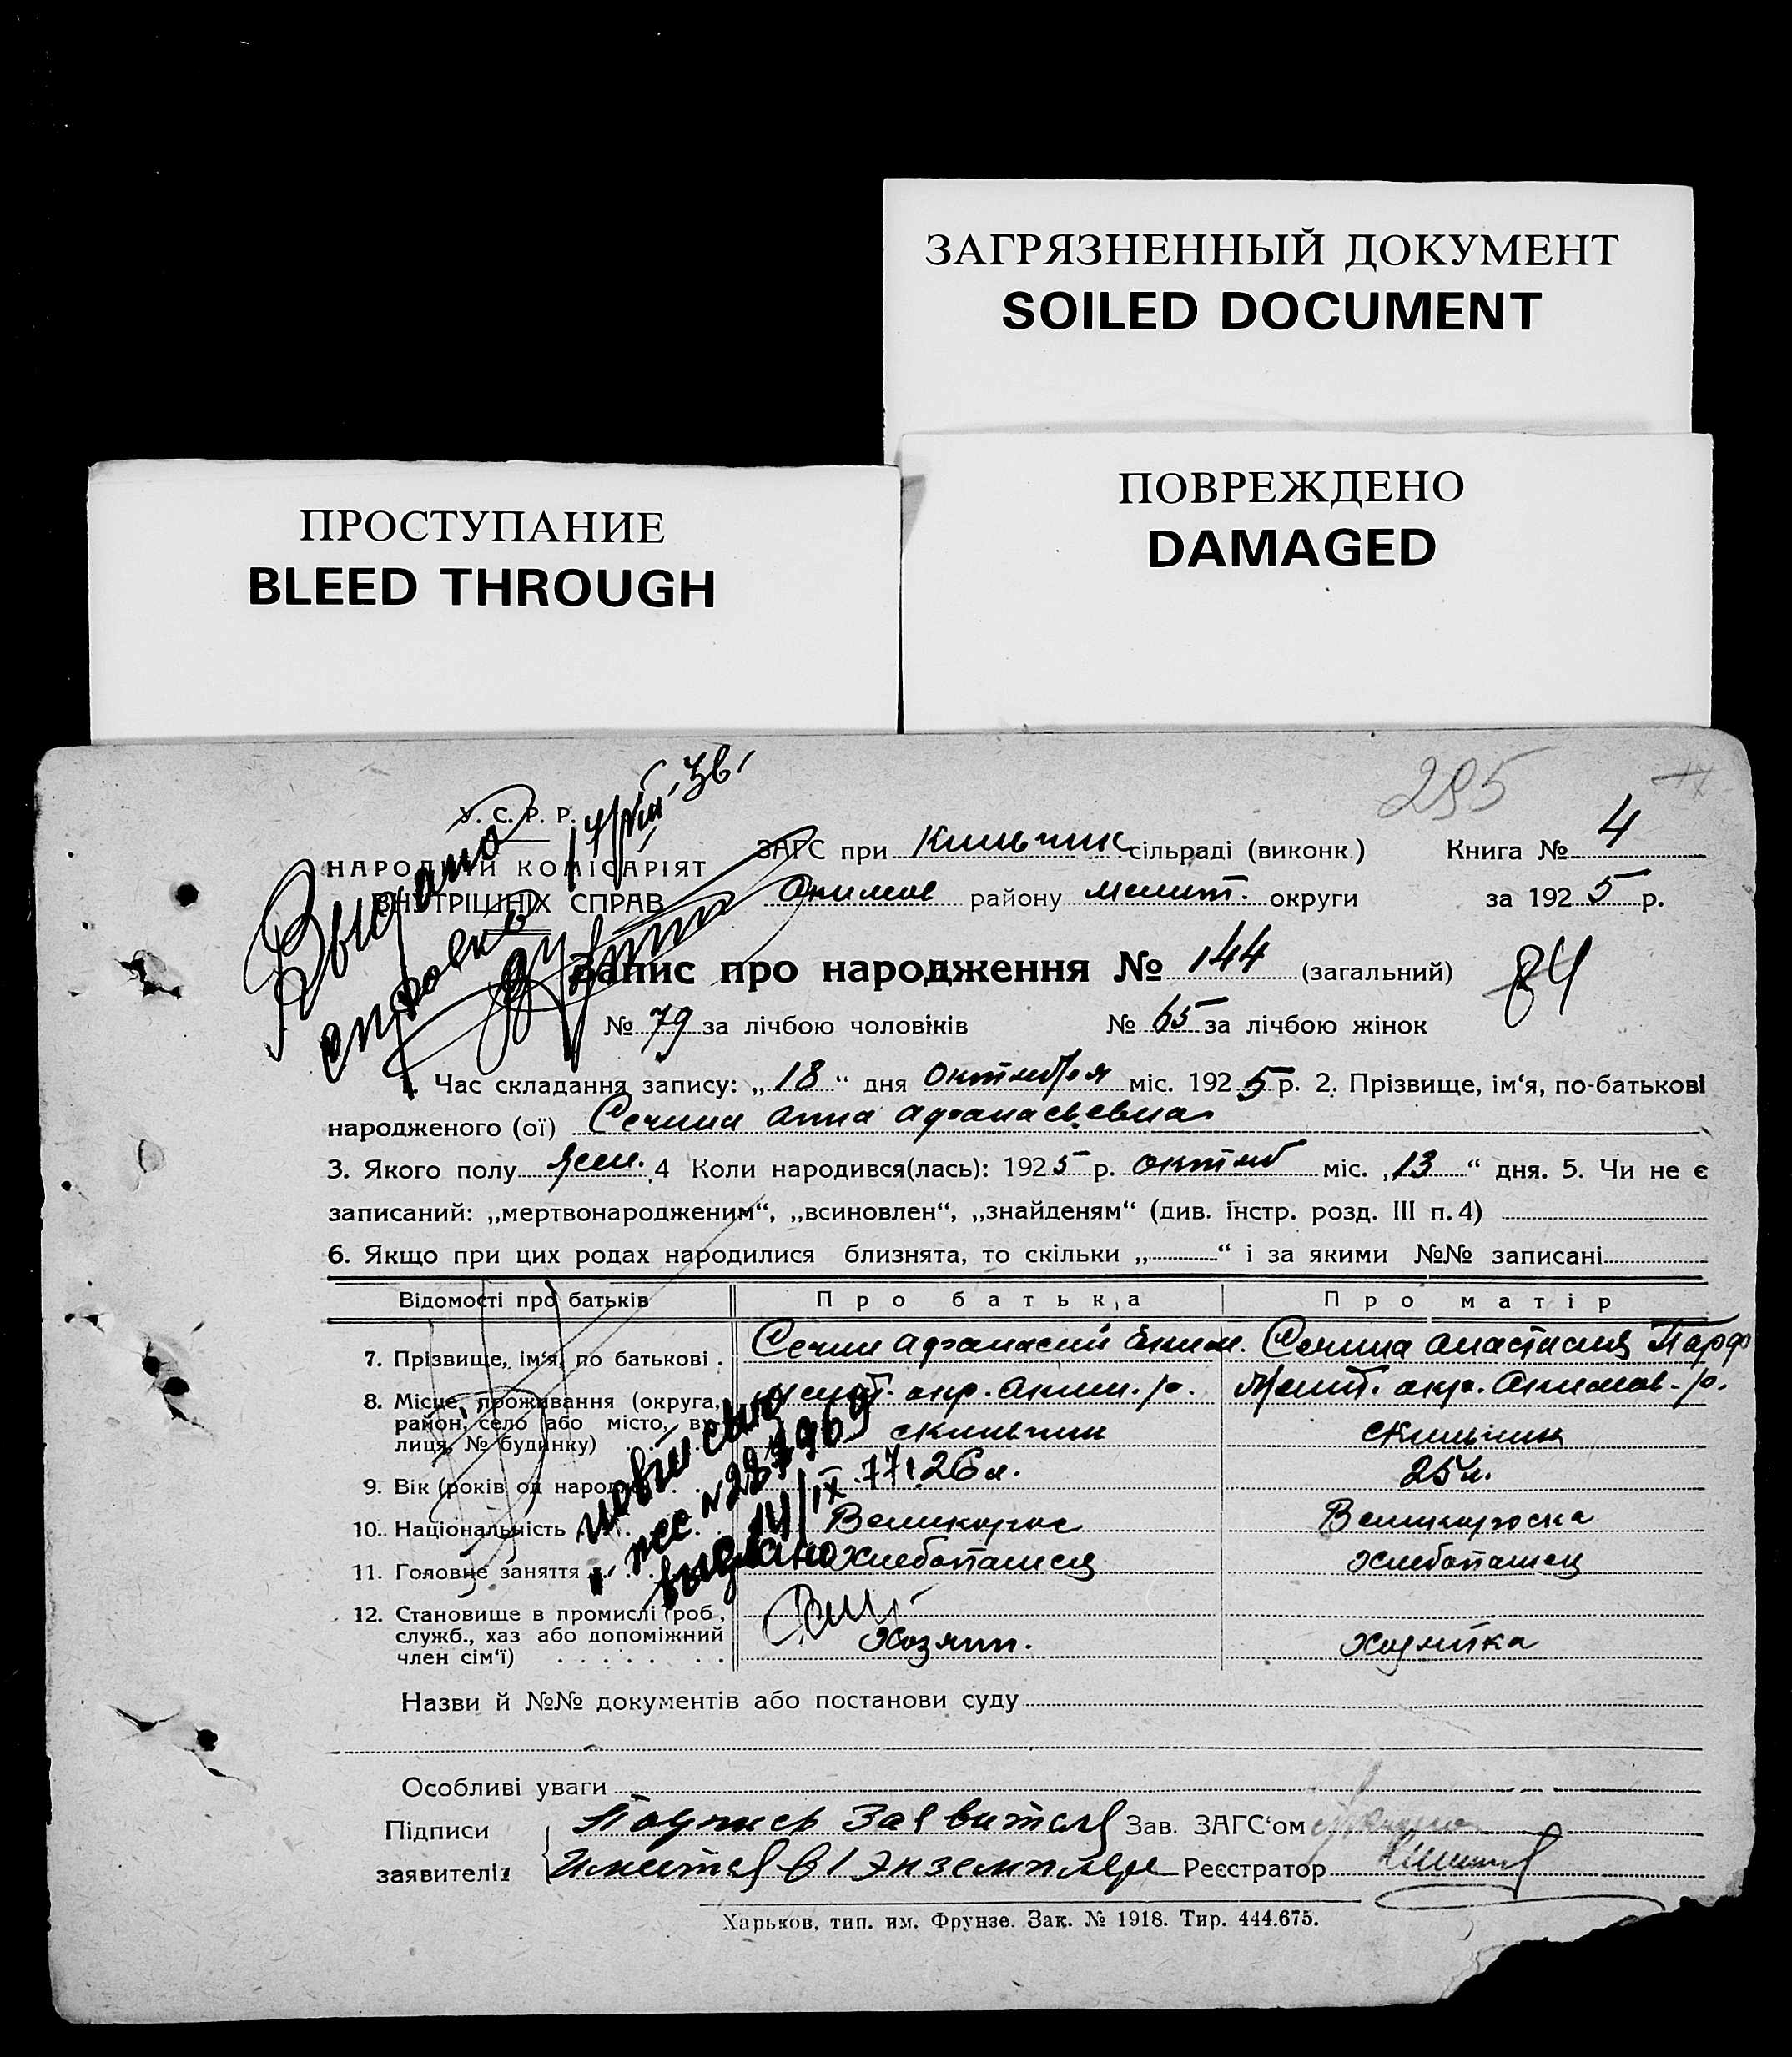 ЗАГРЯЗНЕННЫЙ ДОКУМЕНТ
SOILED DOCUMENT
ПОВРЕЖДЕНО
DAMAGED
ПРОСТУПАНИЕ
BLEED THROUGH
295
Выдано
справка
17/VIII-36.
У. С. Р. Р.
НАРОДНИЙ КОМІСАРІЯТ
ВНУТРІШНІХ СПРАВ
ЗАГС при Кильчик сільраді (виконк.) Книга № 4
Акимов району мелит. округи за 1925 р.
Запис про народження № 144 (загальний) 84
№ 79 за лічбою чоловіків № 65 за лічбою жінок
1. Час складання запису: „18“ дня октября міс. 1925 р. 2. Прізвище, ім‘я, по-батькові
народженого (ої) Сечина Анна Афанасьевна
3. Якого полу жен. 4 Коли народився(лась): 1925 р. октяб міс. „13“ дня. 5. Чи не є
записаний: „мертвонародженим“, „всиновлен“, „знайденям“ (див. інстр. розд. III п. 4)
6. Якщо при цих родах народилися близнята, то скільки „ “ і за якими №№ записані
Відомості про батьків Про батька Про матір
7. Прізвище, ім‘я, по батькові . Сечин Афанасий Аким. Сечина Анастасия Парф
8. Місце проживання (округа, мелит. окр. Аким. р. Мелит. окр. Акимов. р.
район, село або місто, ву-
лиця, № будинку) с Кильчик с Кильчик
9. Вік (років од народж.) 26 л. 25 л.
10. Національність Великорос Великороска
11. Головне заняття Хлебопашец Хлебопашец
12. Становище в промислі (роб.,
служб., хаз або допоміжний
член сім‘ї) Хозяин. Хозяйка
№ 287969
14/IX 77г.
выдано
Назви й №№ документів або постанови суду
Особливі уваги
Підписи Подпись Заявителя Зав. ЗАГС‘ом
заявителів Имеется в 1 экземпляре Реєстратор
Харьков, тип. им. Фрунзе. Зак. № 1918. Тир. 444.675.